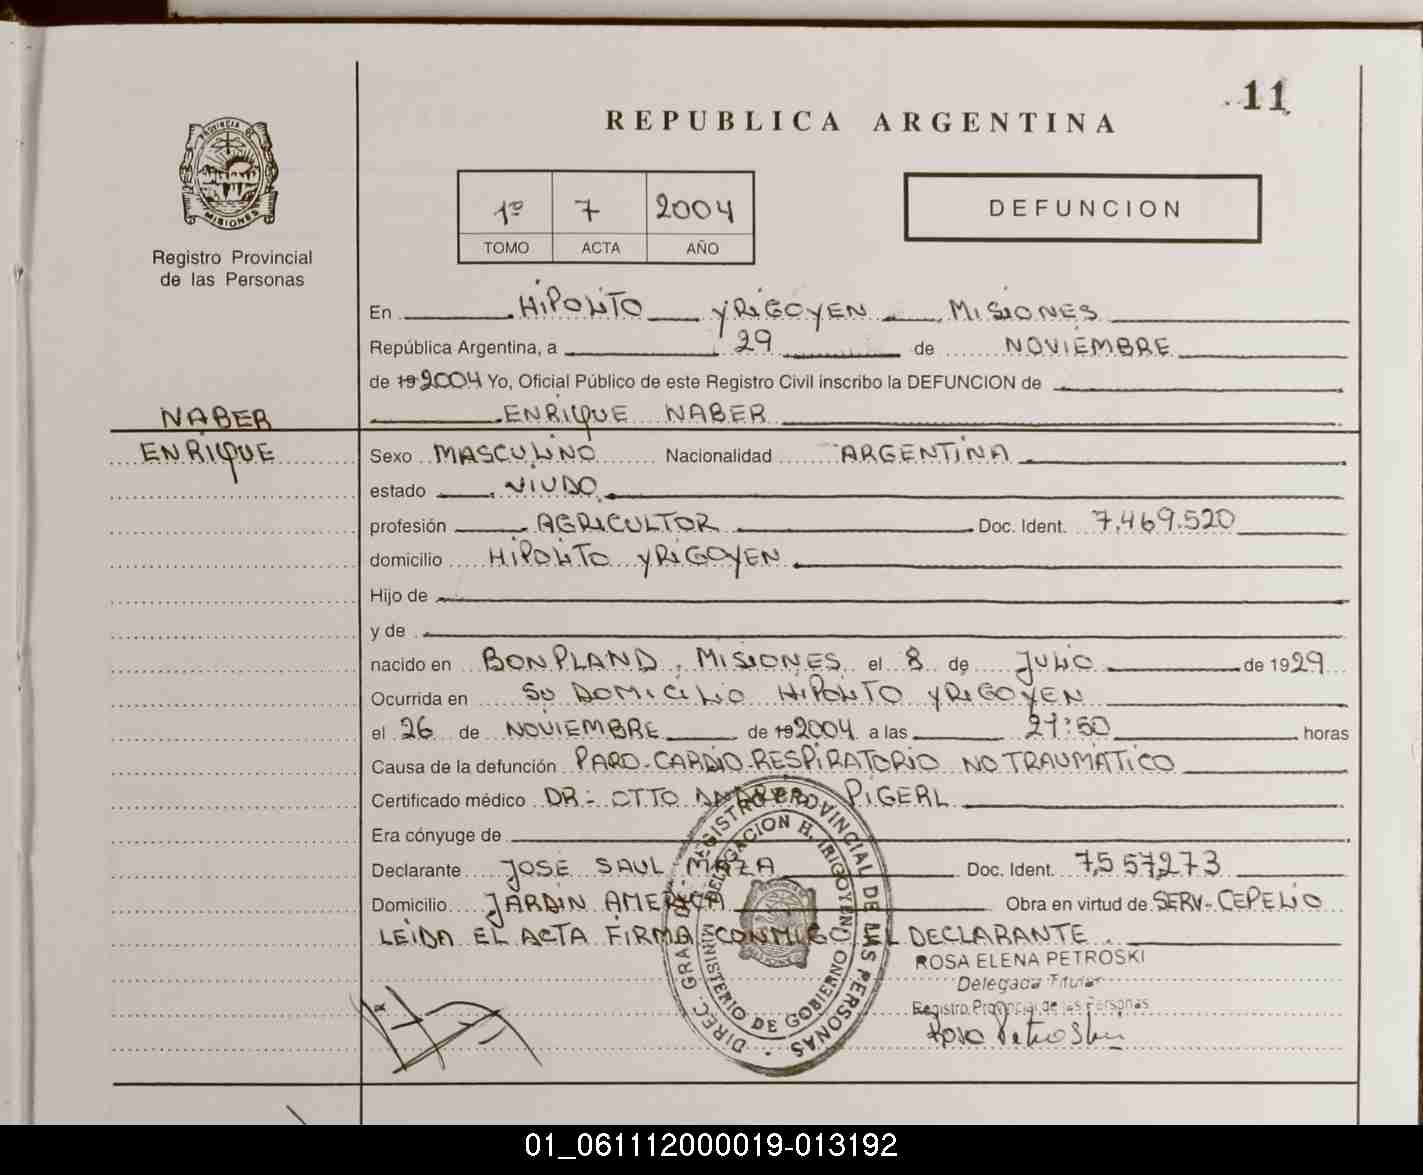 11
REPUBLICA ARGENTINA
PROVINCIA DE
MISIONES
Registro Provincial
de las Personas
1º 7 2004
TOMO ACTA AÑO
DEFUNCION
En HIPOLITO YRIGOYEN MISIONES
República Argentina, a 29 de NOVIEMBRE
de 19 2004 Yo, Oficial Público de este Registro Civil inscribo la DEFUNCION de
NABER
ENRIQUE NABER
ENRIQUE
Sexo MASCULINO Nacionalidad ARGENTINA
estado VIUDO
profesión AGRICULTOR Doc. Ident. 7.469.520
domicilio HIPOLITO YRIGOYEN
Hijo de
y de
nacido en BONPLAND, MISIONES el 8 de JULIO de 1929
Ocurrida en SU DOMICILIO HIPOLITO YRIGOYEN
el 26 de NOVIEMBRE de 19 2004 a las 21:50 horas
Causa de la defunción PARO-CARDIO-RESPIRATORIO NO TRAUMATICO
Certificado médico DR.- OTTO ANDRES PIGERL
Era cónyuge de
Declarante JOSE SAUL MAZA Doc. Ident. 7.557.273
Domicilio JARDIN AMERICA Obra en virtud de SERV- CEPELIO
LEIDA EL ACTA FIRMA CONMIGO EL DECLARANTE.
DIREC. GRAL. DE REGISTRO PROVINCIAL DE LAS PERSONAS
DELEGACION H. IRIGOYEN
MINISTERIO DE GOBIERNO
ROSA ELENA PETROSKI
Delegada Titular
Registro Provincial de las Personas
Rosa Petroski
01_061112000019-013192